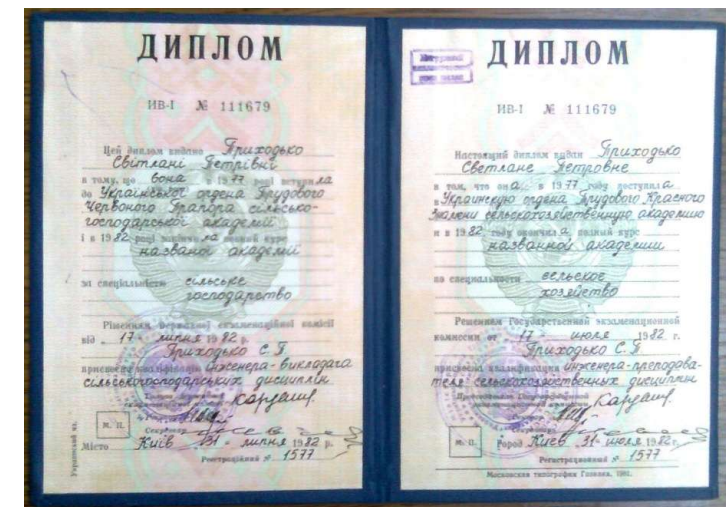 ДИПЛОМ
ИВ-I № 111679
Цей диплом видано Приходько
Світлані Петрівні
в тому, що вона в 1977 році вступила
до Української ордена Трудового
Червоного Прапора сільсько-
господарської академії
і в 1982 році закінчила повний курс
названої академії
за спеціальністю сільське
господарство
Рішенням Державної екзаменаційної комісії
від „17" липня 1982 р.
Приходько С. П
присвоєно кваліфікацію інженера-викладача
сільськогосподарських дисциплін
Голова Державної
екзаменаційної комісії
Секретар
М. П.
Місто Київ 31 - липня 1982 р.
Реєстраційний № 1577
Украинский яз.
ДИПЛОМ
ИВ-I № 111679
Настоящий диплом выдан Приходько
Светлане Петровне
в том, что она в 1977 году поступила
в Украинскую ордена Трудового Красного
Знамени сельскохозяйственную академию
и в 1982 году окончила полный курс
названной академии
по специальности сельское
хозяйство
Решением Государственной экзаменационной
комиссии от 17 - июля 1982 г.
Приходько С. П
присвоена квалификация инженера-преподава-
теля сельскохозяйственных дисциплин
Председатель Государственной
экзаменационной комиссии
Секретарь
М. П.
Город Киев 31 - июля 1982 г.
Регистрационный № 1577
Московская типография Гознака, 1981.